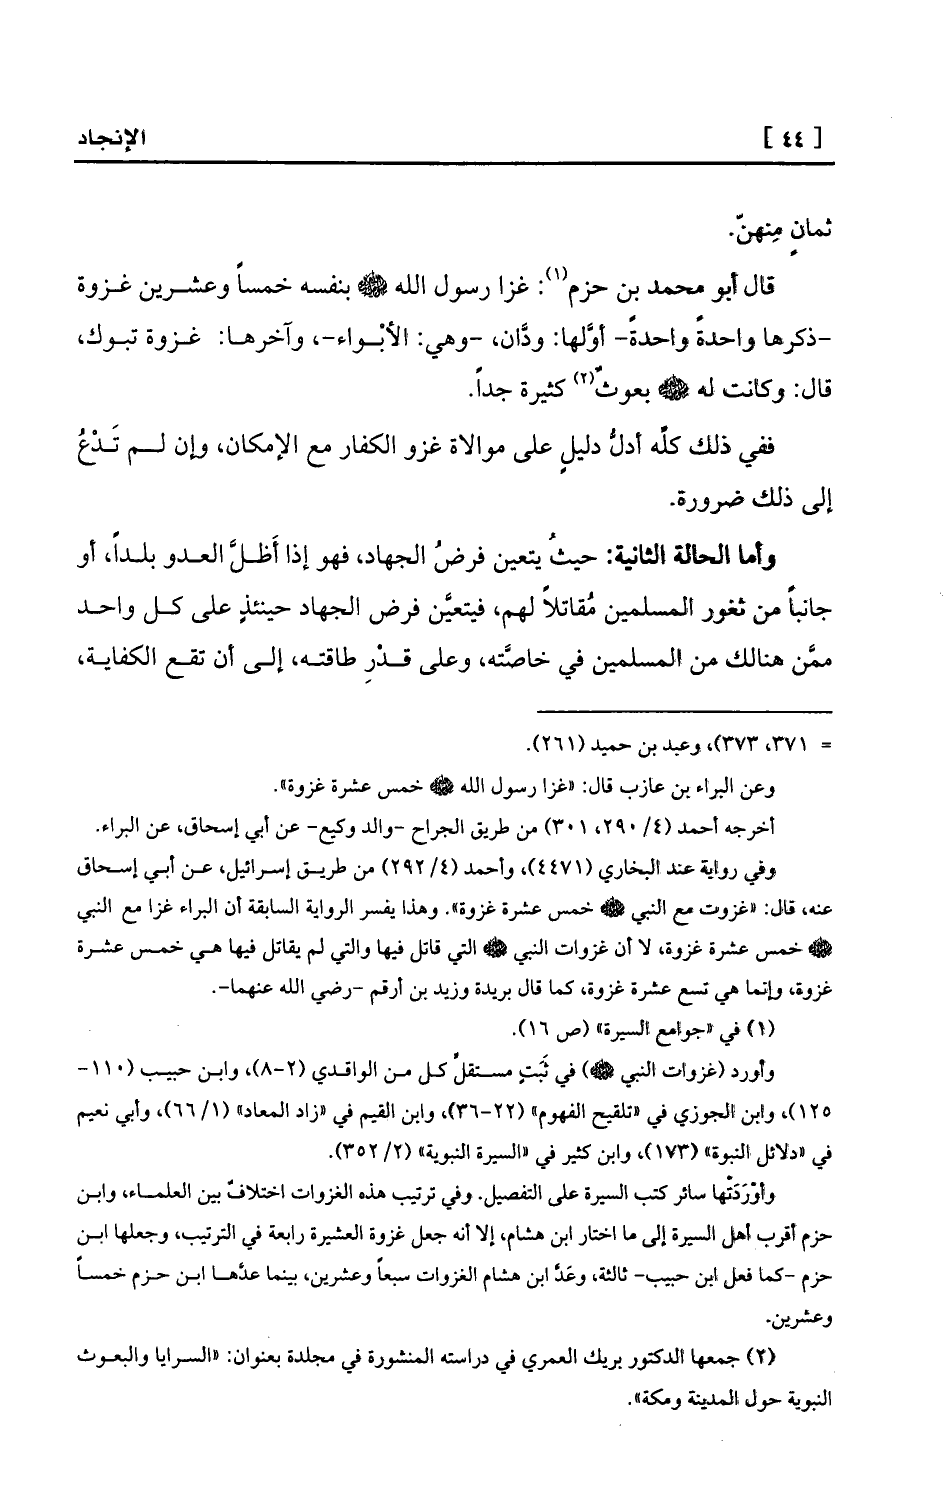 [ ٤٤ ] الإنجاد
ثمانٍ مِنهنّ.
قال أبو محمد بن حزم(١): غزا رسول الله ﷺ بنفسه خمساً وعشرين غزوة
-ذكرها واحدةً واحدةً- أوَّلها: ودَّان، -وهي: الأبْواء-، وآخرها: غزوة تبوك،
قال: وكانت له ﷺ بعوثٌ(٢) كثيرة جداً.
ففي ذلك كلّه أدلُّ دليلٍ على موالاة غزو الكفار مع الإمكان، وإن لم تَدْعُ
إلى ذلك ضرورة.
وأما الحالة الثانية: حيثُ يتعين فرضُ الجهاد، فهو إذا أَظلَّ العدو بلداً، أو
جانباً من ثغور المسلمين مُقاتلاً لهم، فيتعيَّن فرض الجهاد حينئذٍ على كل واحد
ممَّن هنالك من المسلمين في خاصَّته، وعلى قدْرِ طاقته، إلى أن تقع الكفاية،
= ٣٧١، ٣٧٣)، وعبد بن حميد (٢٦١).
وعن البراء بن عازب قال: «غزا رسول الله ﷺ خمس عشرة غزوة».
أخرجه أحمد (٤/ ٢٩٠، ٣٠١) من طريق الجراح -والد وكيع- عن أبي إسحاق، عن البراء.
وفي رواية عند البخاري (٤٤٧١)، وأحمد (٤/ ٢٩٢) من طريق إسرائيل، عن أبي إسحاق
عنه، قال: «غزوت مع النبي ﷺ خمس عشرة غزوة». وهذا يفسر الرواية السابقة أن البراء غزا مع النبي
ﷺ خمس عشرة غزوة، لا أن غزوات النبي ﷺ التي قاتل فيها والتي لم يقاتل فيها هي خمس عشرة
غزوة، وإنما هي تسع عشرة غزوة، كما قال بريدة وزيد بن أرقم -رضي الله عنهما-.
(١) في «جوامع السيرة» (ص ١٦).
وأورد (غزوات النبي ﷺ) في ثَبَتٍ مستقلٍّ كل من الواقدي (٢-٨)، وابن حبيب (١١٠-
١٢٥)، وابن الجوزي في «تلقيح الفهوم» (٢٢-٣٦)، وابن القيم في «زاد المعاد» (١/ ٦٦)، وأبي نعيم
في «دلائل النبوة» (١٧٣)، وابن كثير في «السيرة النبوية» (٢/ ٣٥٢).
وأوْرَدَتْها سائر كتب السيرة على التفصيل. وفي ترتيب هذه الغزوات اختلافٌ بين العلماء، وابن
حزم أقرب أهل السيرة إلى ما اختار ابن هشام، إلا أنه جعل غزوة العشيرة رابعة في الترتيب، وجعلها ابن
حزم -كما فعل ابن حبيب- ثالثة، وعَدَّ ابن هشام الغزوات سبعاً وعشرين، بينما عدَّها ابن حزم خمساً
وعشرين.
(٢) جمعها الدكتور بريك العمري في دراسته المنشورة في مجلدة بعنوان: «السرايا والبعوث
النبوية حول المدينة ومكة».